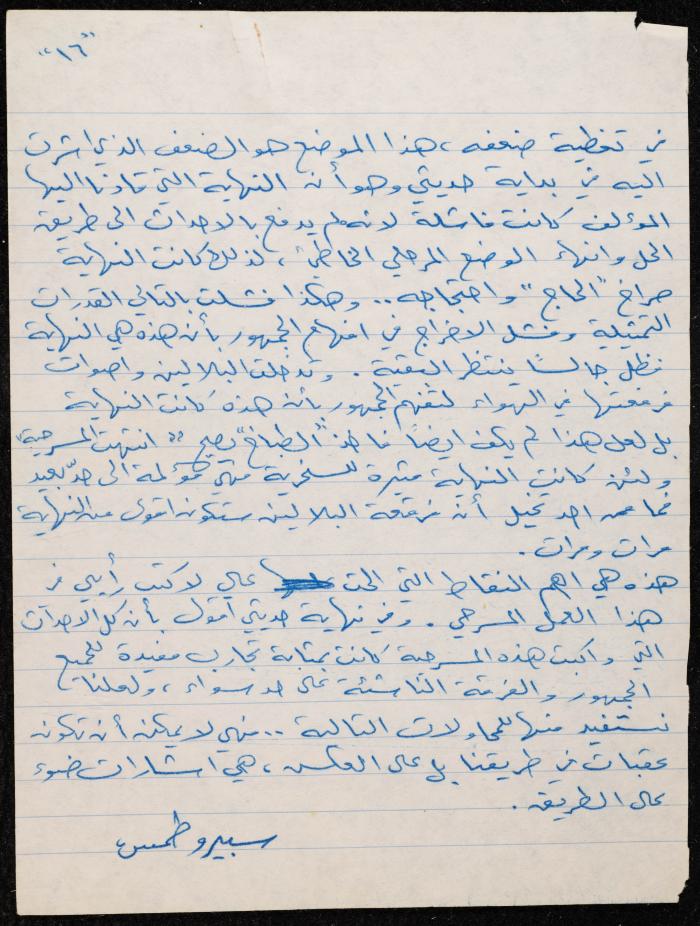 "١٦"
في تغطية ضعفه، هذا الموضع هو الضعف الذي اشرت
اليه في بداية حديثي وهو أن النهاية التي قادنا اليها
المؤلف كانت فاشلة لانه لم يدفع بالاحداث الى طريقة
الحل وانهاء الوضع المرحلي الخاطئ، لذلك كانت النهاية
صراخ "الحاج" واحتجاجه.. وهكذا فشلت بالتالي القدرات
التمثيلية وفشل الاخراج في افهام الجمهور بأن هذه هي النهاية
فظل جالسًا ينتظر البقية. وتدخلت البلالين واصوات
فرقعتها في الهواء لتفهم الجمهور بأن هذه كانت النهاية
بل لعل هذا لم يكف ايضاً فاخذ "الطباخ" يصيح "انتهت المسرحية"
ولئن كانت النهاية مثيرة للسخرية فهي مؤلمة الى حدّ بعيد
فما من احد تخيل أن فرقعة البلالين ستكون اقوى من النهاية
مرات ومرات.
هذه هي اهم النقاط التي الحت علي لاكتب رأيي في
هذا العمل المسرحي. وفي نهاية حديثي أقول بأن كل الاحداث
التي واكبت هذه المسرحية كانت بمثابة تجارب مفيدة للجميع
الجمهور والفرقة الناشئة على حد سواء، ولعلنا
نستفيد منها للمحاولات التالية.. فهي لا يمكن أن تكون
عقبات في طريقنا بل على العكس، هي اشارات ضوء
على الطريق.
سبيرو طمس